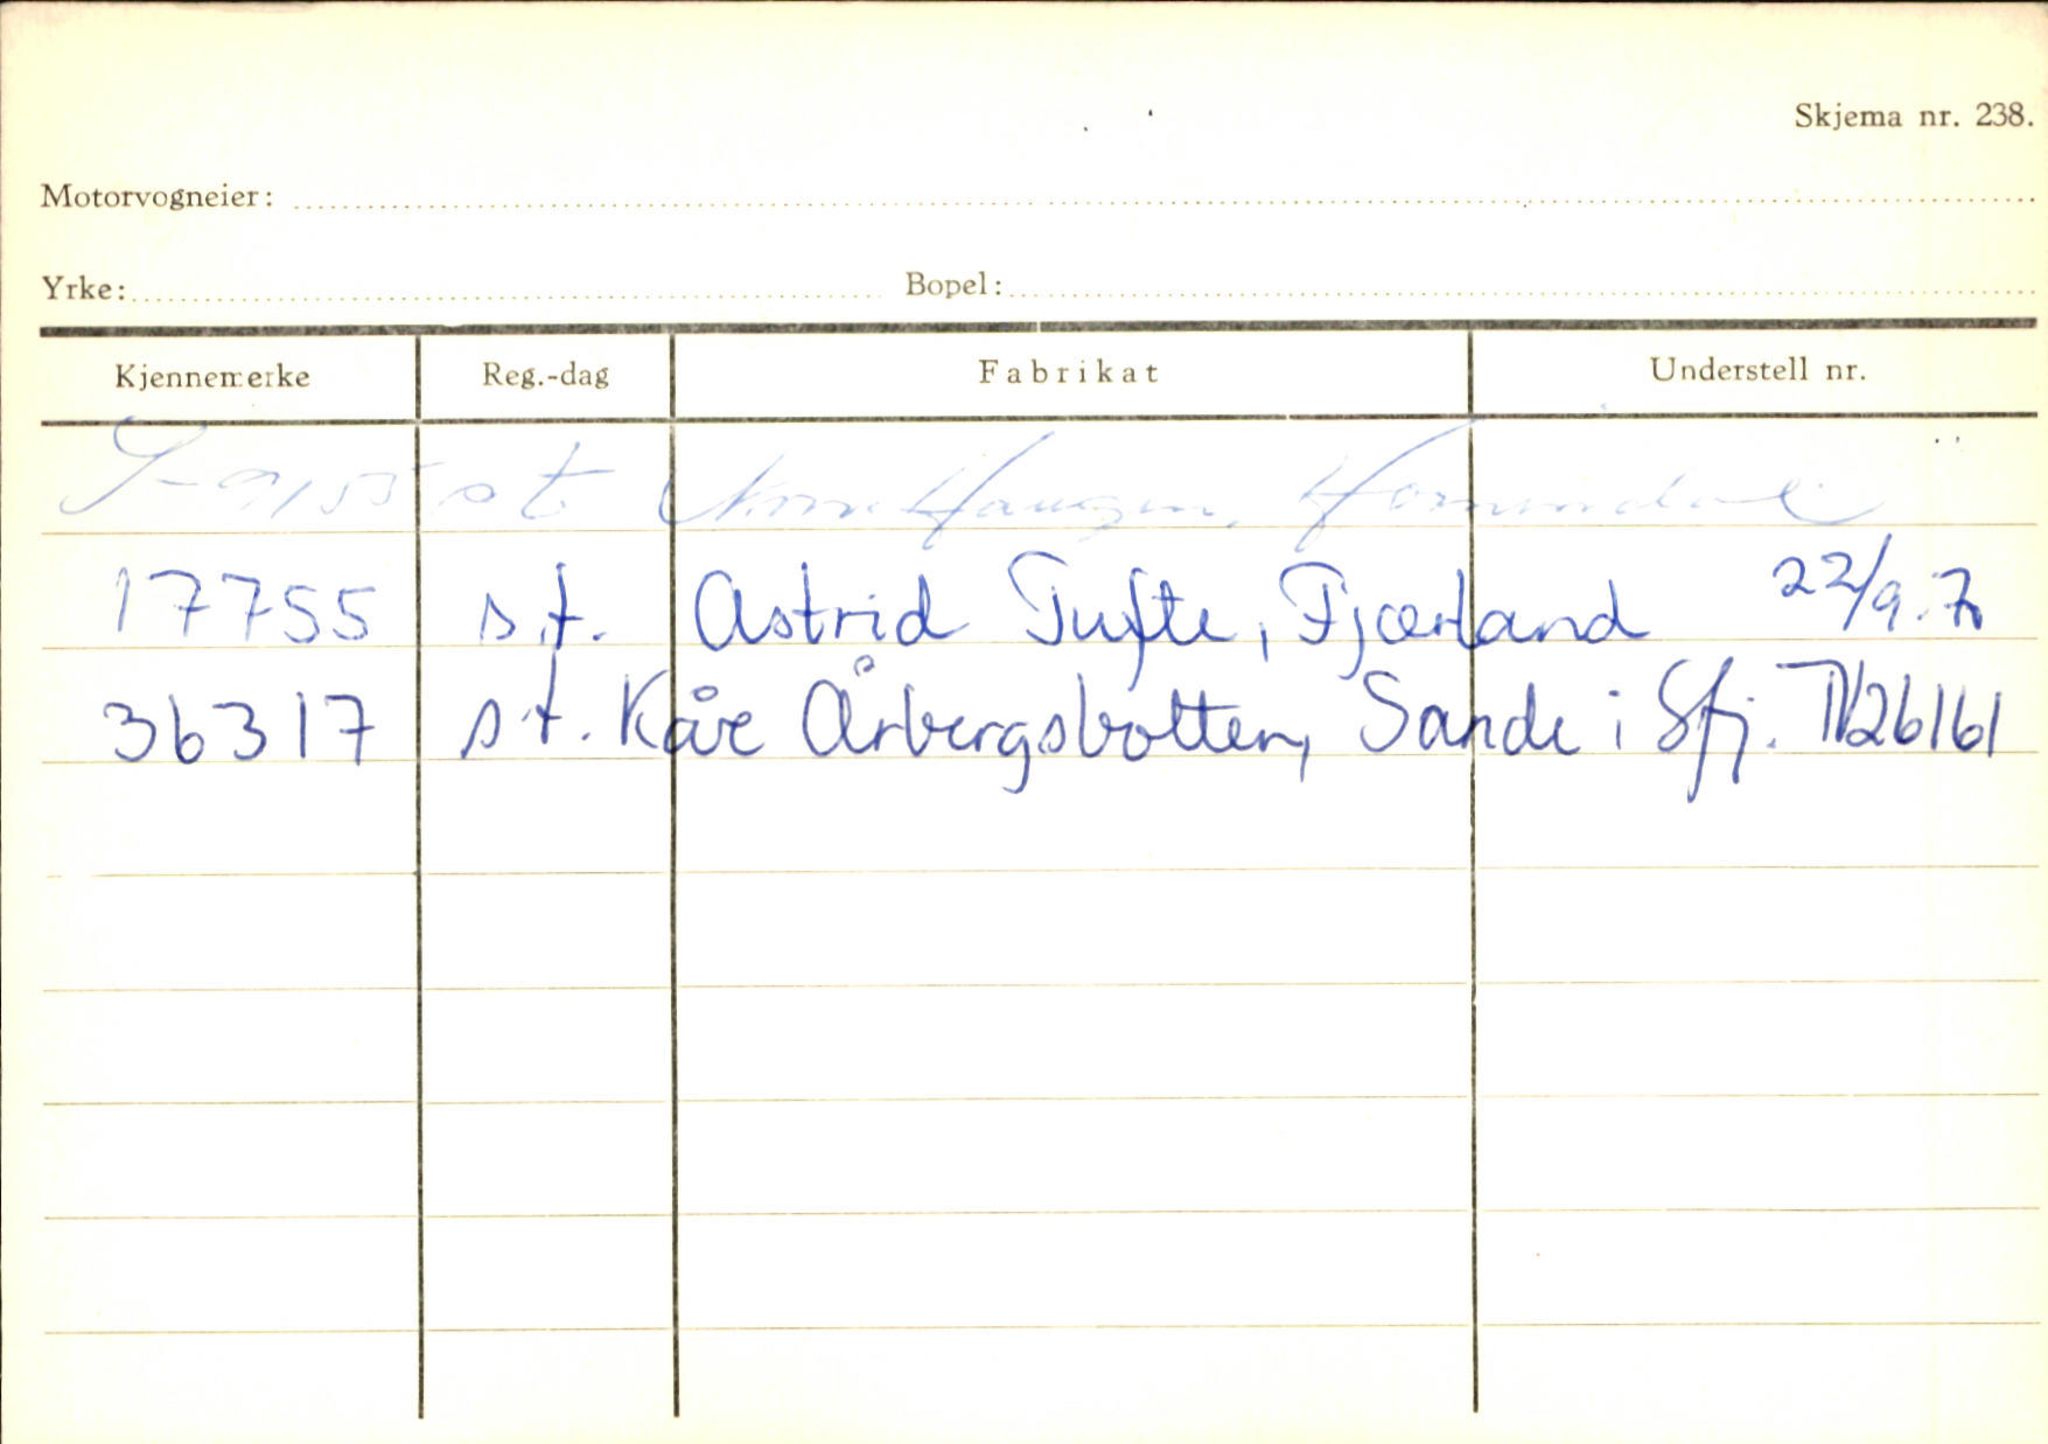 Skjema nr. 238.
Motorvogneier:
Yrke: Bopel:
Kjennemerke Reg.-dag Fabrikat Understell nr.
S-9155 st Haugen, Hornindal
17755 s.t. Astrid Tufte, Fjærland 22/9.70
36317 s.t. Kåre Årbergsbotten, Sande i Sfj. 26161